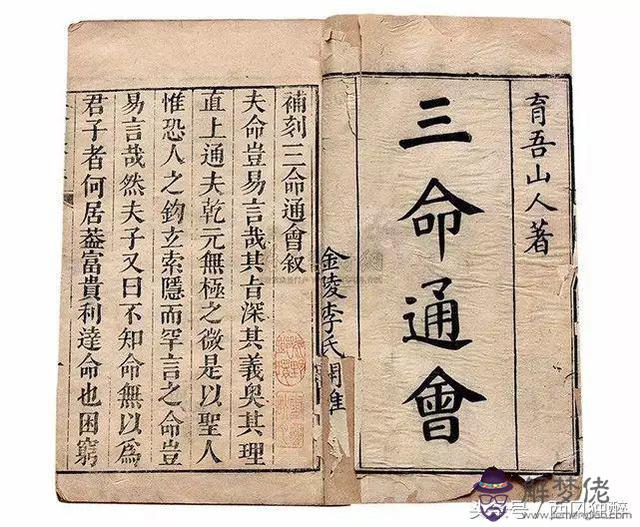 育吾山人著
三命通會
金陵李氏
補刻三命通會叙
夫命豈易言哉其旨深其義奧其理
直上通夫乾元無極之微是以聖人
惟恐人之鈎玄索隱而罕言之命豈
易言哉然夫子又曰不知命無以爲
君子者何居葢富貴利達命也困窮
解梦佬
jiemenglao.com